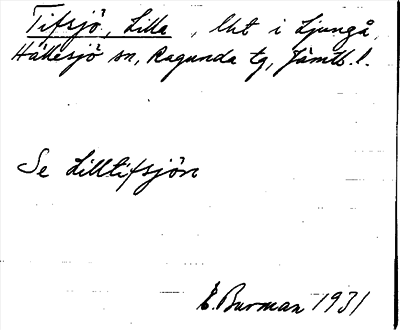 Tifsjö, Lilla, lht i Ljungå,
Hällesjö sn, Ragunda tg, Jämtl. l.
Se Lilltifsjön
E. Burman 1931